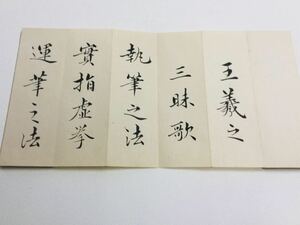 王羲之
三昧歌
執筆之法
實指虛拳
運筆之法